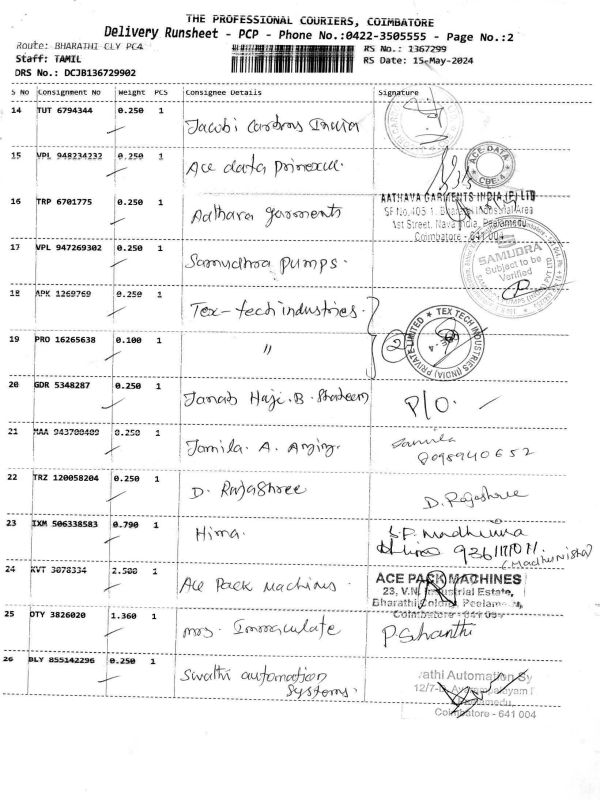 THE PROFESSIONAL COURIERS, COIMBATORE
Delivery Runsheet - PCP - Phone No.:0422-3505555 - Page No.:2
Route: BHARATHI CLY PC4 RS No.: 1367299
Staff: TAMIL RS Date: 15-May-2024
DRS No.: DCJB136729902
S No Consignment No Weight PCS Consignee Details Signature
14 TUT 6794344 0.250 1 Jacobi Carbons India
15 VPL 948234232 0.250 1 Ace data
ACE DATA CBE-4
16 TRP 6701775 0.250 1 Aathara garments
AATHAVA GARMENTS INDIA (P) LTD
SF No.405/1, Industrial Area
1st Street, Nava India, Peelamedu
Coimbatore - 641 004
17 VPL 947269302 0.250 1 Samudhra Pumps.
SAMUDRA
Subject to be
Verified
18 APK 1269769 0.250 1 Tex-tech industries.
TEX TECH INDUSTRIES (INDIA) PRIVATE LIMITED
19 PRO 16265638 0.100 1 "
20 GDR 5348287 0.250 1 Janab Haji. B. P/O. -
21 MAA 943700409 0.250 1 Jamila. A. Jamila
8098940652
22 TRZ 120058204 0.250 1 D. RajaShree D. Rajashree
23 IXM 506338583 0.790 1 Hima.
(Madhunisha)
24 KVT 3078334 2.500 1 Ace Pack Machines.
ACE PACK MACHINES
23, V.N. Industrial Estate,
Bharathi Colony, Peelamedu,
Coimbatore - 641 004
25 OTY 3826020 1.360 1 mrs. Immaculate P. Shanthi
26 BLY 855142296 0.250 1 Swathi automation
Systems.
Coimbatore - 641 004